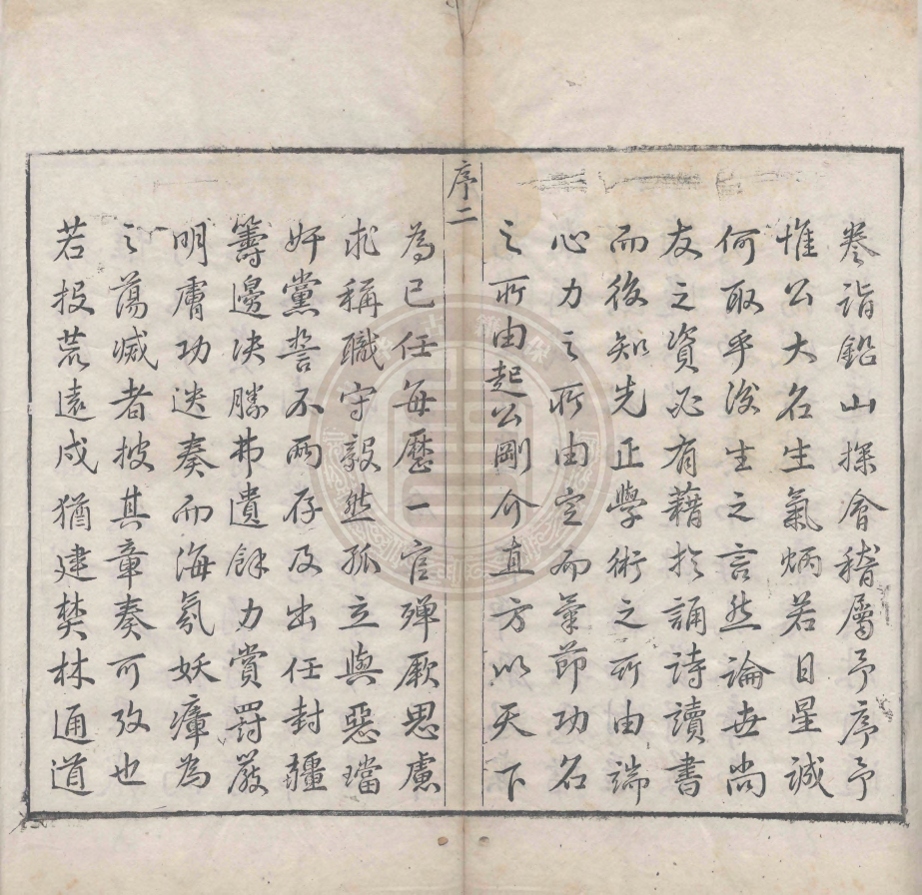 卷詣鉛山探濬稽屬予序予
惟公大名生氣炳若日星誠
何取乎後生之言然論世尚
友之資必有藉於誦詩讀書
而後知先正學術之所由端
心力之所由定而氣節功名
之所由起公剛介直方以天下
序二
為己任每歷一官殫厥思慮
求稱職守毅然孤立與惡璫
奸黨誓不兩存及出任封疆
籌邊决勝弗遺餘力賞罰嚴
明膚功迭奏而海氛妖瘴為
之蕩滅者披其章奏可攷也
若投荒遠戍猶建樊林通道